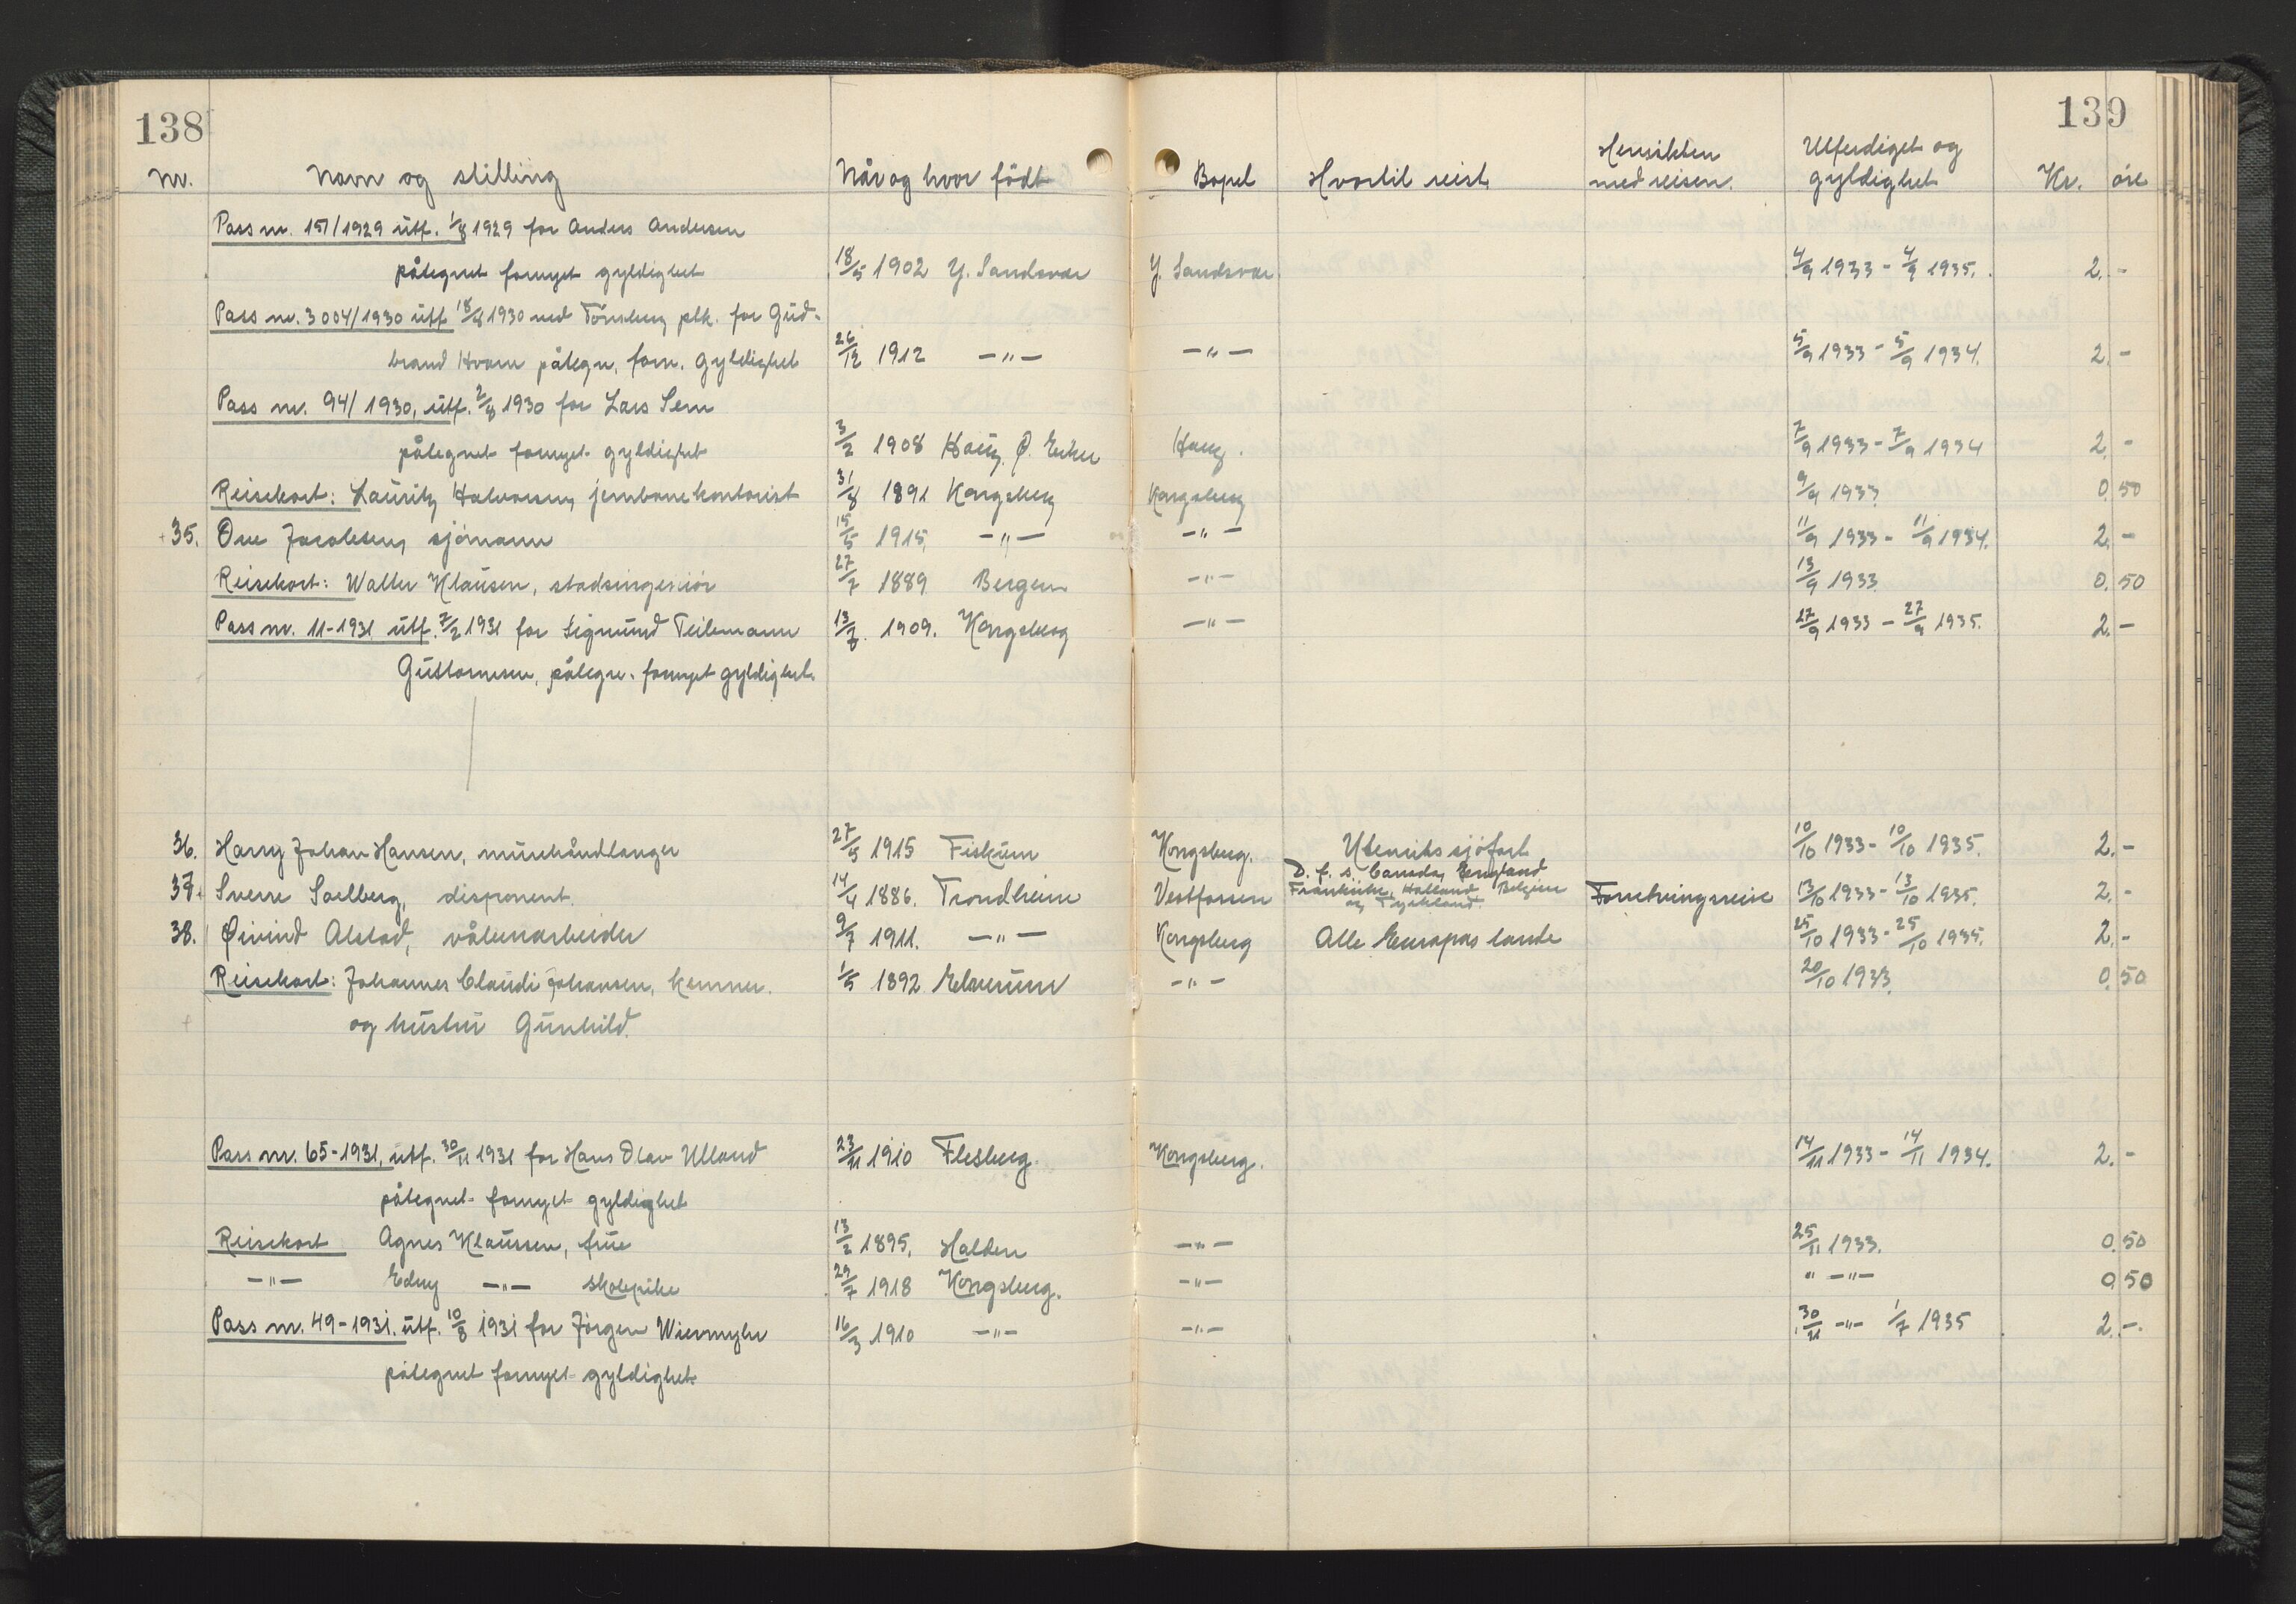 138
139
Nr. Navn og stilling Når og hvor födt Bopel Hvortil reist Hensikten med reisen. Utferdiget og gyldighet Kr. öre
Pass nr. 157/1929 utf. 1/8 1929 for Anders Andersen
påtegnet fornyet gyldighet 18/5 1902 Y. Sandsvær Y. Sandsvær 4/9 1933 - 4/9 1935. 2. -
Pass nr. 3004/1930 utf. 18/8 1930 ved Tönsberg plk. for Gud-
brand Hvam påtegn. forn. gyldighet 26/12 1912 -"- -"- 5/9 1933 - 5/9 1934. 2. -
Pass nr. 94/1930, utf. 2/8 1930 for Lars Sem
påtegnet fornyet gyldighet 3/2 1908 Haug, Ø. Eiker Haug. 7/9 1933 - 7/9 1934 2. -
Reisekort: Lauritz Halvorsen, jernbanekontorist 31/8 1891 Kongsberg Kongsberg 9/9 1933 0. 50
35. Ove Jacobsen, sjömann 15/5 1915, -"- -"- 11/9 1933 - 11/9 1934. 2. -
Reisekort: Walter Klausen, stadsingeniör 27/7 1889 Bergen -"- 13/9 1933. 0. 50
Pass nr. 11-1931 utf. 7/2 1931 for Sigmund Teilemann 13/8. 1909. Kongsberg -"- 27/9 1933 - 27/9 1935. 2. -
Guttormsen, påtegn. fornyet gyldighet.
36. Harry Johan Hansen, murehåndlanger 27/5 1915 Fiskum Kongsberg. Utenriks sjöfart 10/10 1933 - 10/10 1935. 2. -
37. Sverre Saelberg, disponent. 14/4 1886. Trondheim Vestfossen D. f. s. Canada, England Frankrike, Holland Belgien og Tyskland. Forretningsreise 13/10 1933 - 13/10 1935. 2. -
38. Øivind Alstad, våbenarbeider 9/7 1911. -"- Kongsberg Alle Europas lande 25/10 1933 - 25/10 1935. 2. -
Reisekort: Johannes Claudi Johansen, kemner. 1/5 1892 Elverum -"- 20/10 1933. 0. 50
og hustru Gunhild.
Pass nr. 65-1931, utf. 30/11 1931 for Hans Olav Ulland 23/11 1910 Flesberg. Kongsberg. 14/11 1933 - 14/11 1934. 2. -
påtegnet fornyet gyldighet
Reisekort Agnes Klaussen, frue 13/2 1895, Halden -"- 25/11 1933. 0. 50
-"- Edny -"- skolepike 29/7 1918 Kongsberg. -"- " -"- 0. 50
Pass nr. 49-1931. utf. 10/8 1931 for Jörgen Wiermyhr 16/3 1910 -"- -"- 30/11 -"- 1/7 1935 2. -.
påtegnet fornyet gyldighet.